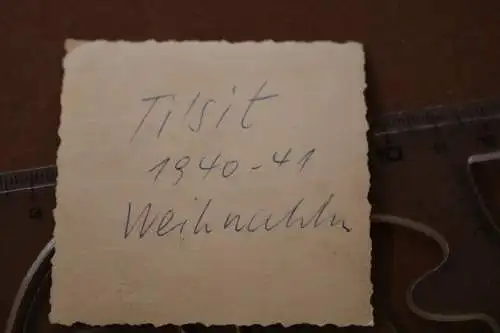 Tilsit
1940-41
Weihnachten